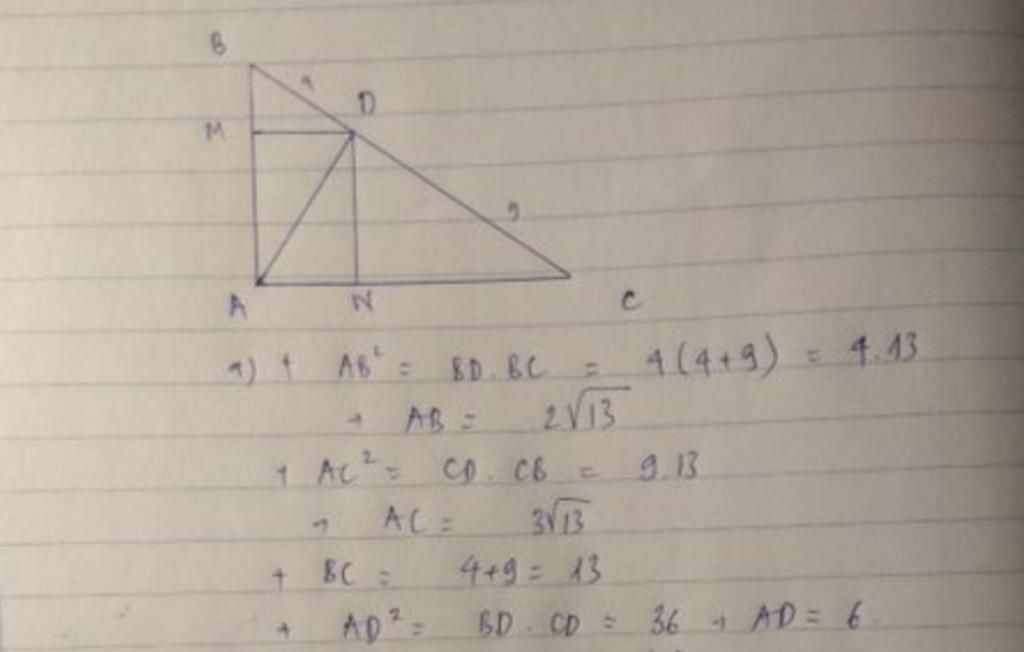 B
4
D
M
9
A N C
a) + AB² = BD . BC = 4(4+9) = 4.13
→ AB = 2√13
+ AC² = CD . CB = 9.13
→ AC = 3√13
+ BC = 4+9 = 13
+ AD² = BD . CD = 36 → AD = 6